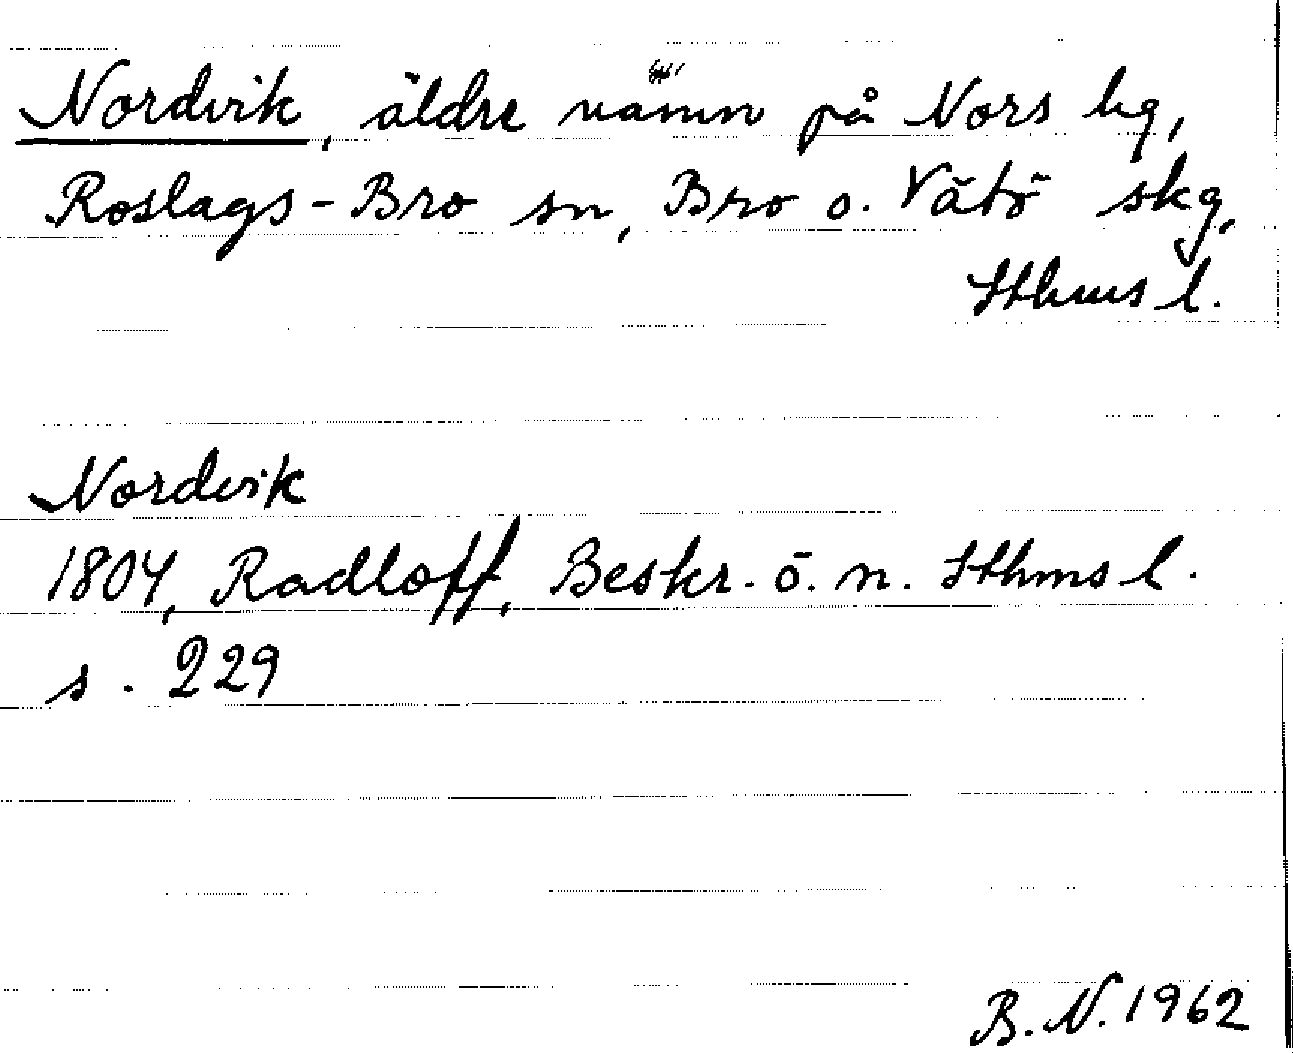 Nordvik, äldre namn på Nors hg,
Roslags-Bro sn, Bro o. Vätö skg,
Sthms l.
Nordvik
1804, Radloff, Beskr. ö. n. Sthms l.
s. 229
B. N. 1962